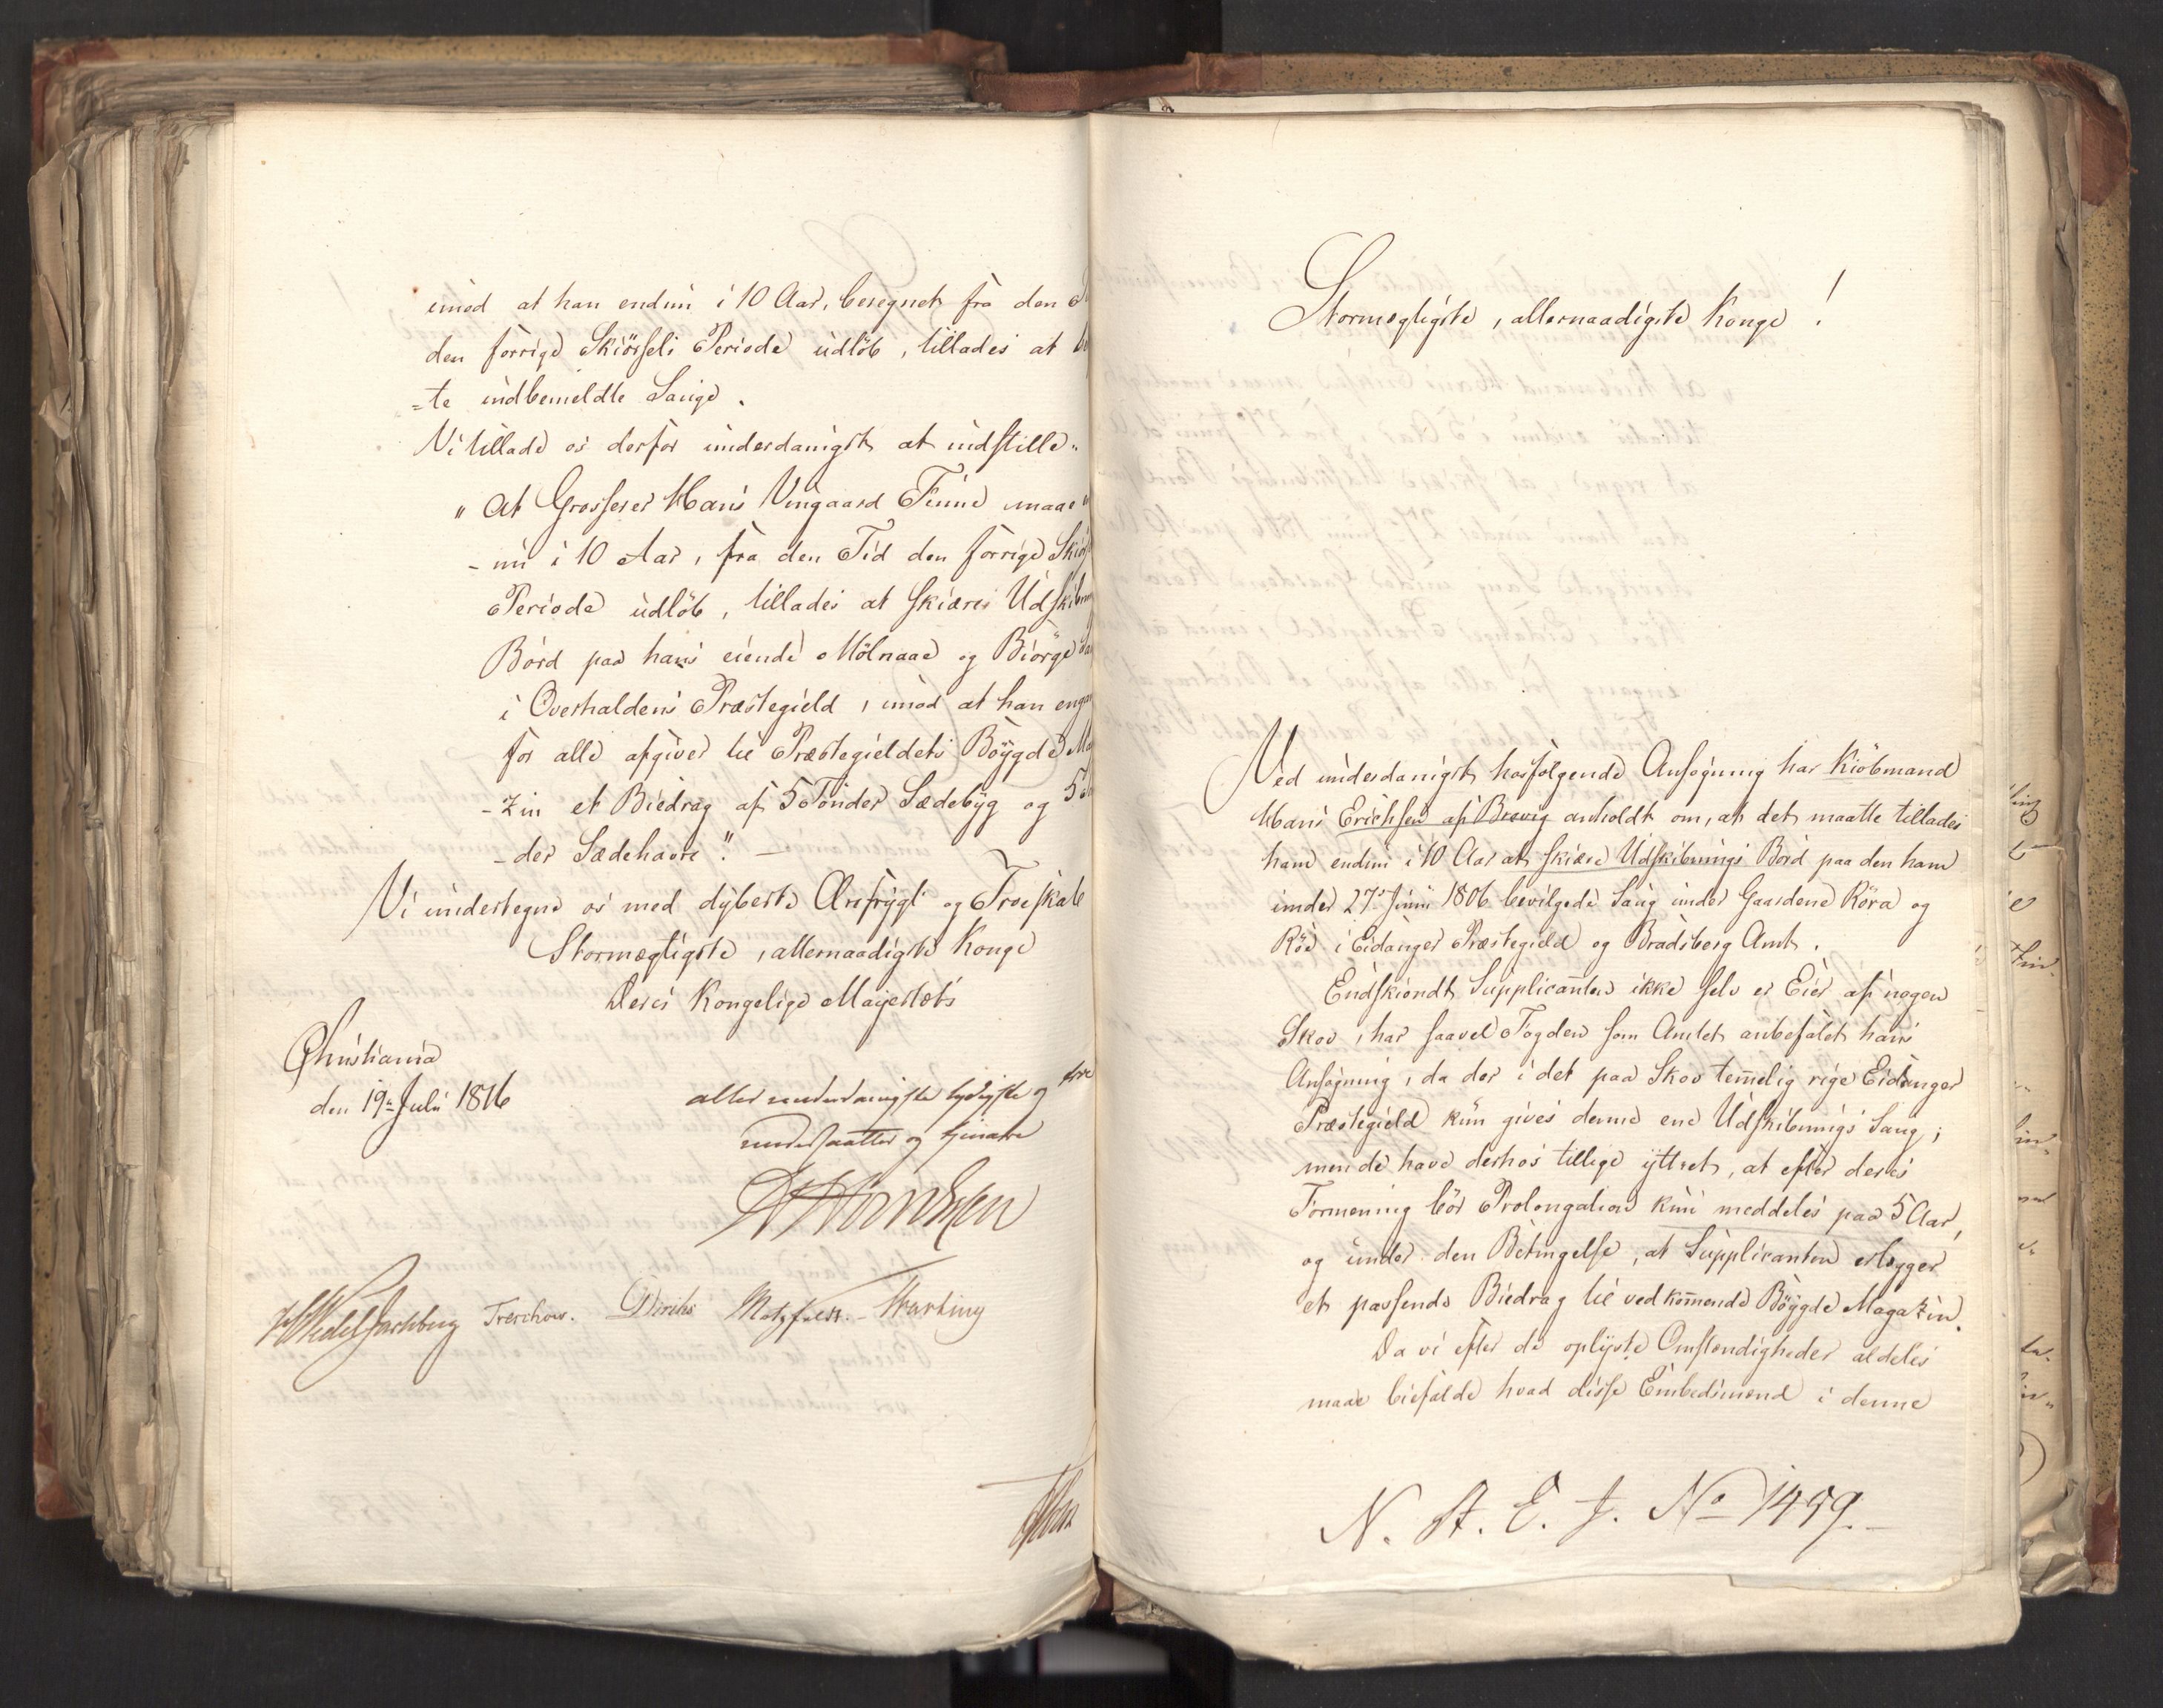 imod at han endnu i 10 Aar, beregnet fra den
den forrige Skiørsels Periode udløb, tillades at be
=te indbemeldte Sauge.
Vi tillade os derfor underdanigst at indstille:
" At Grosserer Hans Vingaard Finne maae
- nu i 10 Aar, fra den Tid den forrige Skiørs
Periode udløb, tillades at skiære Udskibn
Bord paa hans eiende Mölnaae og Biörge Sau
i Overhaldens Præstegield, imod at han engan
for alle afgiver til Præstegieldets Böygde Ma
-zin et Biedrag af 5 Tønder Sædebyg og 5
-der Sædehavre." —
Vi undertegne os med dybeste Ærefrygt og Troeskab
Stormægtigste, allernaadigste Konge
Deres Kongelige Majestæts
Christiania
den 19de Juli 1816
allerunderdanigste lydigste og troe
undersaatter og tjenere
Wedel Jarlsberg Treschow. Diriks Motzfeldt. Krefting
Stormægtigste, allernaadigste Konge !
Ved underdanigst hosfølgende Ansøgning har Kiöbmand
Hans Erichsen af Brevig anholdt om, at det maatte tillades
ham endnu i 10 Aar at skiære Udskibnings Bord paa den ham
under 27de Junii 1806 bevilgede Saug under Gaardene Röra og
Röd i Eidanger Præstegield og Bradsberg Amt.
Endskiöndt Supplicanten ikke selv er Eier af nogen
Skov, har saavel Fogden som Amtet anbefalet hans
Ansøgning, da der i det paa Skov temelig rige Eidanger
Præstegield kun gives denne ene Udskibnings Saug;
men de have derhos tillige yttret, at efter deres
Formening bör Prolongation kun meddeles paa 5 Aar,
og under den Betingelse, at Supplicanten erlægger
et passende Biedrag til vedkommende Böygde Magazin.
Da vi efter de oplyste Omstændigheder aldeles
maae biefalde hvad disse Embedsmænd i denne
N. A. E. J. No 1459.